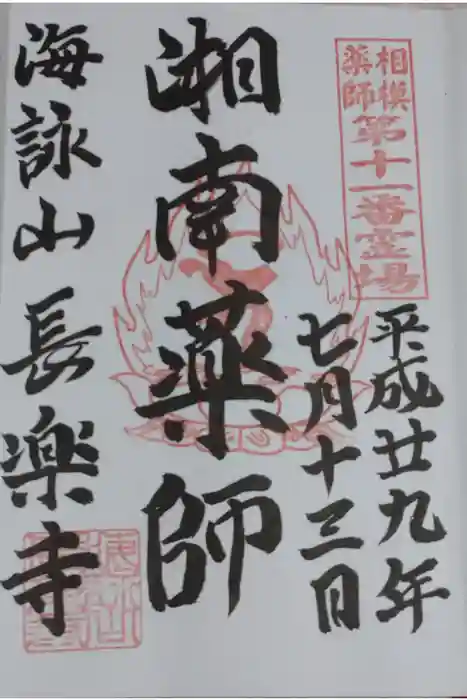 相模
薬師
第十一番霊場
平成廿九年
七月十三日
湘南薬師
海詠山長楽寺